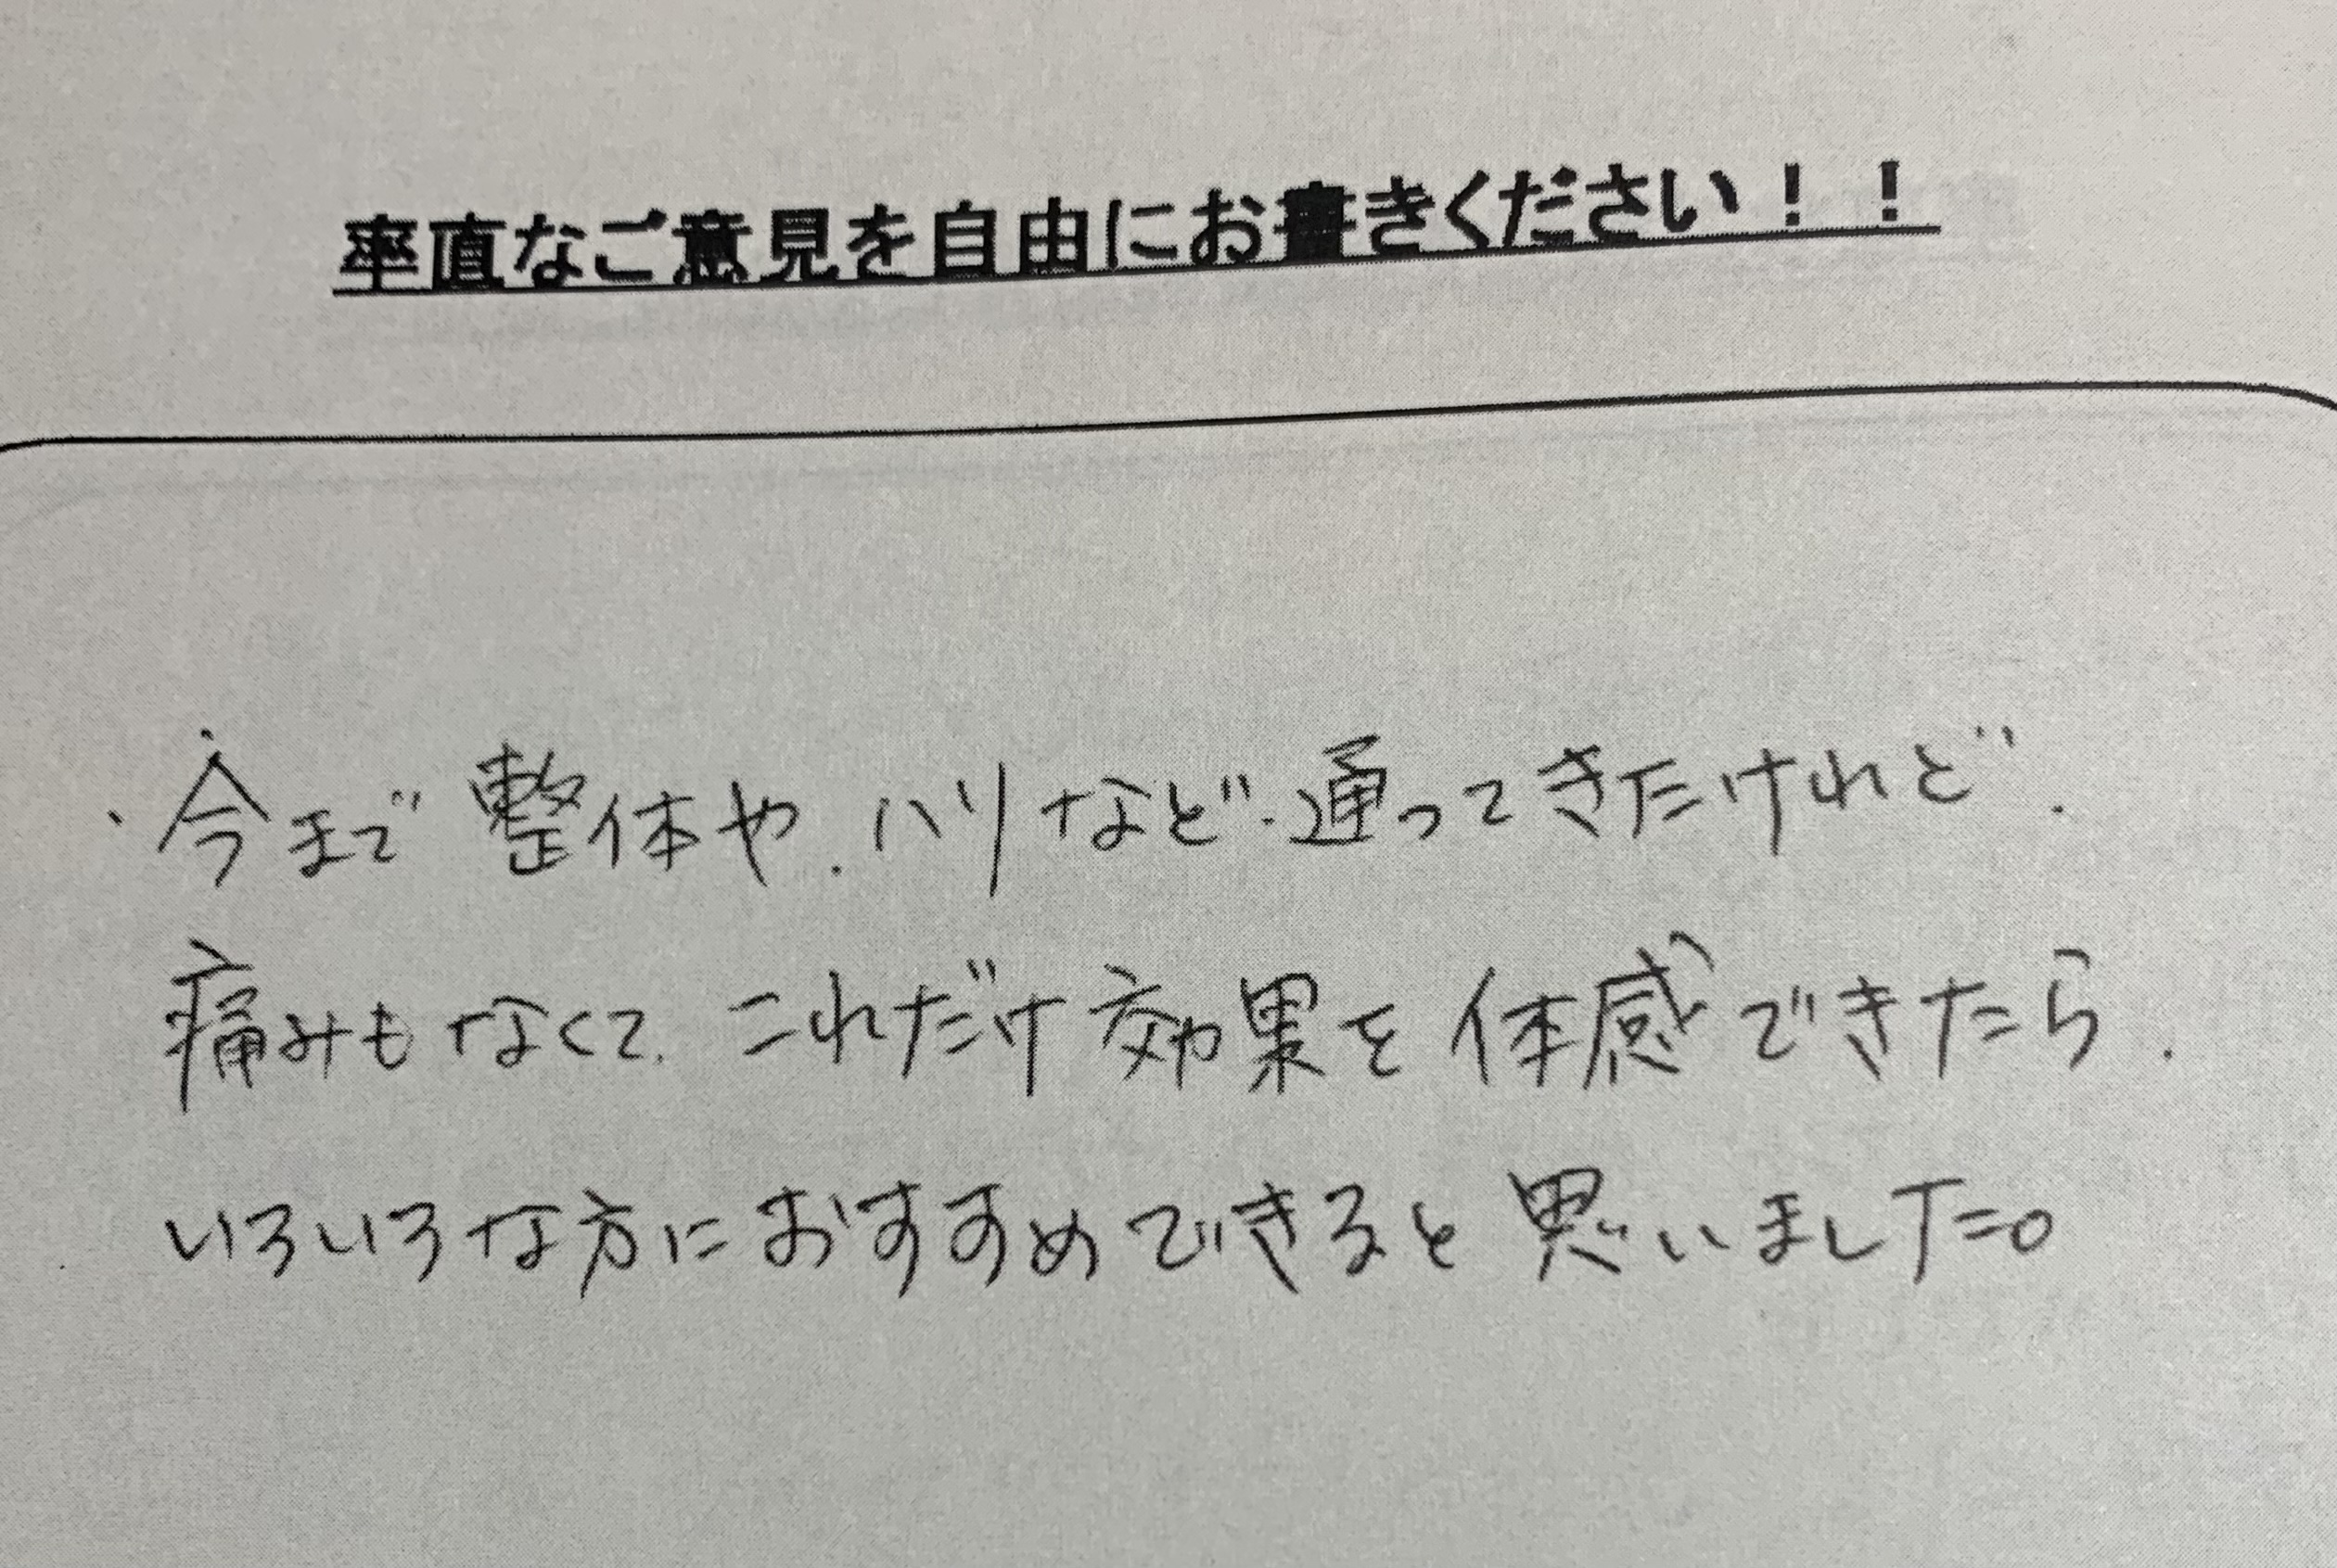 率直なご意見を自由にお書きください！！
・今まで整体や、ハリなど、通ってきたけれど、
痛みもなくて、これだけ効果を体感できたら、
いろいろな方におすすめできると思いました。